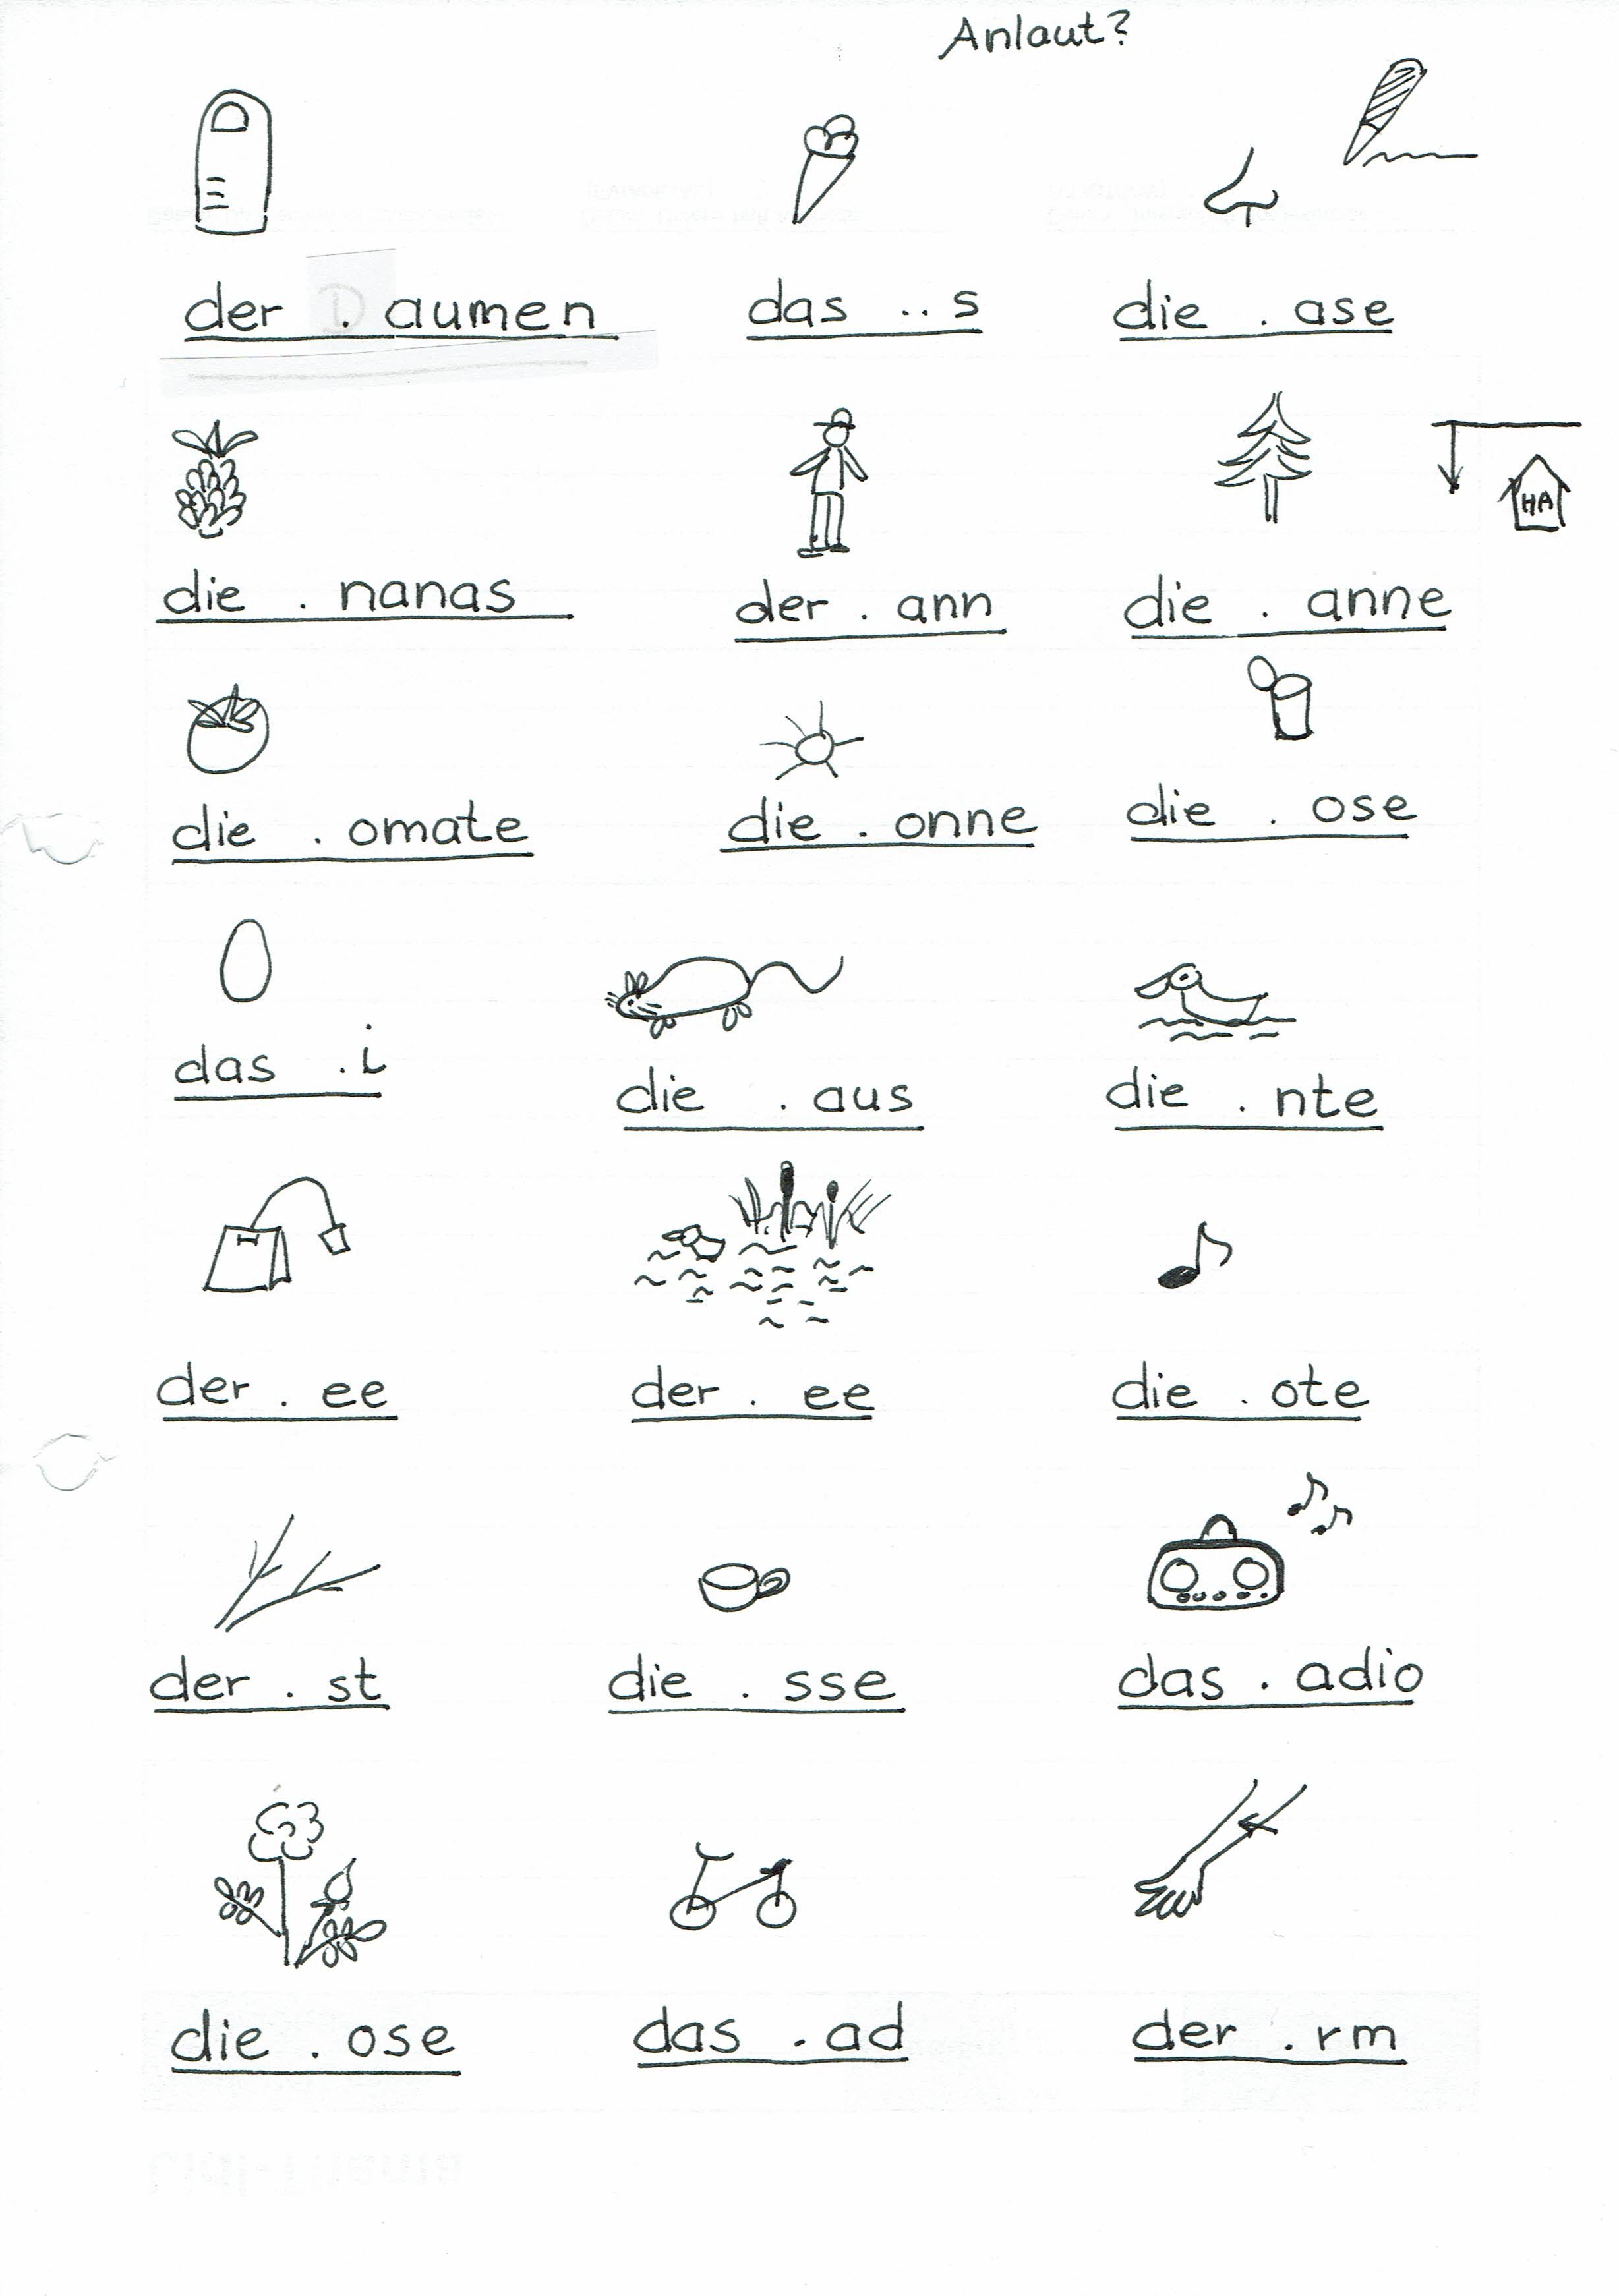 Anlaut?
der D aumen das .. s die . ase
die . nanas der . ann die . anne
HA
die . omate die . onne die . ose
das . i die . aus die . nte
der . ee der . ee die . ote
der . st die . sse das . adio
die . ose das . ad der . rm